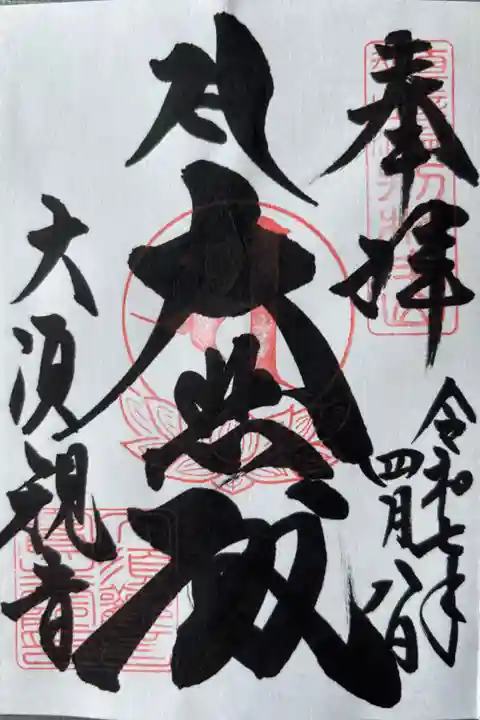 奉拝
令和七年
四月八日
大悲殿
大須観音